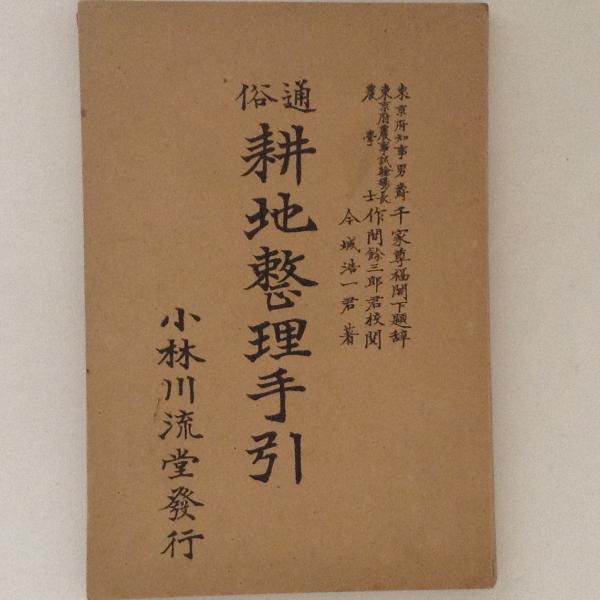 東京府知事男爵千家尊福閣下題辞
東京府農事試験場長
農学士作間餘三郎君校閲
今城浩一君著
通俗
耕地整理手引
小林川流堂發行